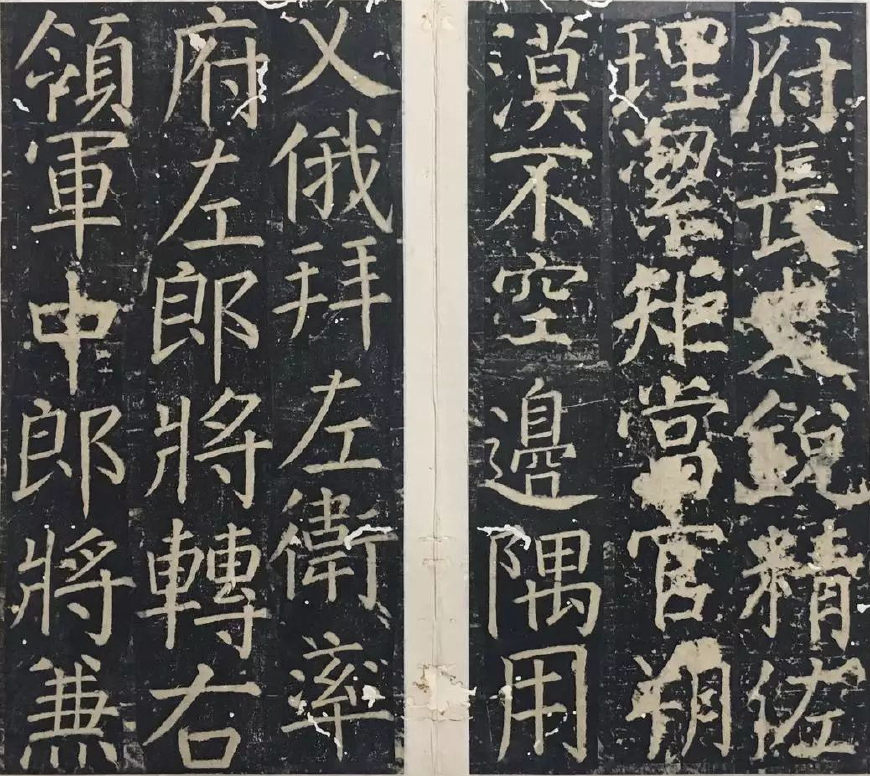 府長史銳精佐
理潔矩當官朔
漠不空邊隅用
乂俄拜左衛率
府左郎將轉右
領軍中郎將兼